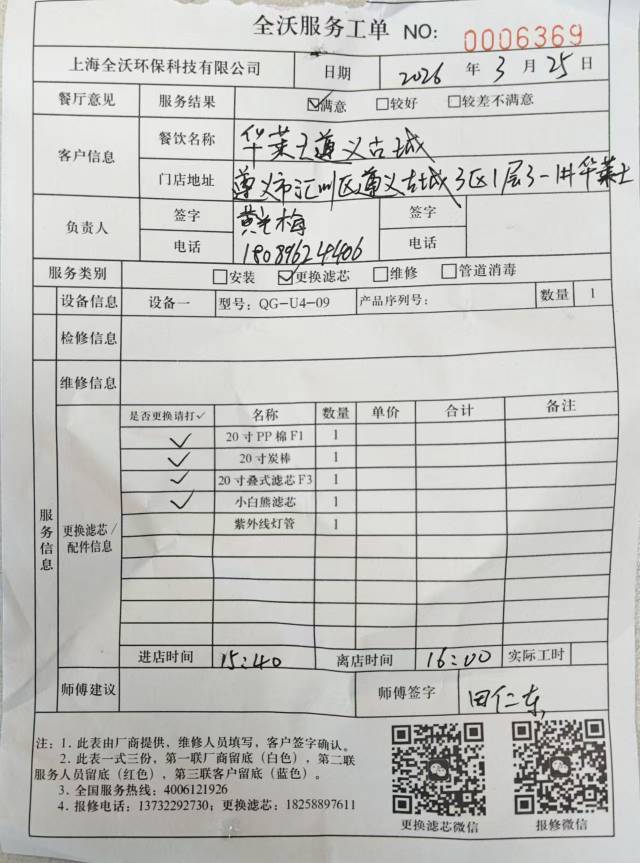 全沃服务工单 NO: 0006369
上海全沃环保科技有限公司 日期 2026 年 3 月 25 日
餐厅意见 服务结果 ☑满意 □较好 □较差不满意
客户信息 餐饮名称 华莱士遵义古城
门店地址 遵义市汇川区遵义古城3区1层3-1#华莱士
负责人 签字 黄 梅 签字
电话 18089624406 电话
服务类别 □安装 ☑更换滤芯 □维修 □管道消毒
设备信息 设备一 型号: QG-U4-09 产品序列号: 数量 1
检修信息
维修信息
服务信息
更换滤芯/配件信息
是否更换请打✓ 名称 数量 单价 合计 备注
✓ 20寸PP棉F1 1
✓ 20寸炭棒 1
✓ 20寸叠式滤芯F3 1
✓ 小白熊滤芯 1
紫外线灯管 1
进店时间 15:40 离店时间 16:00 实际工时
师傅建议 师傅签字 田仁东
注: 1. 此表由厂商提供, 维修人员填写, 客户签字确认。
2. 此表一式三份, 第一联厂商留底(白色), 第二联
服务人员留底(红色), 第三联客户留底(蓝色)。
3. 全国服务热线: 4006121926
4. 报修电话: 13732292730; 更换滤芯: 18258897611
更换滤芯微信 报修微信